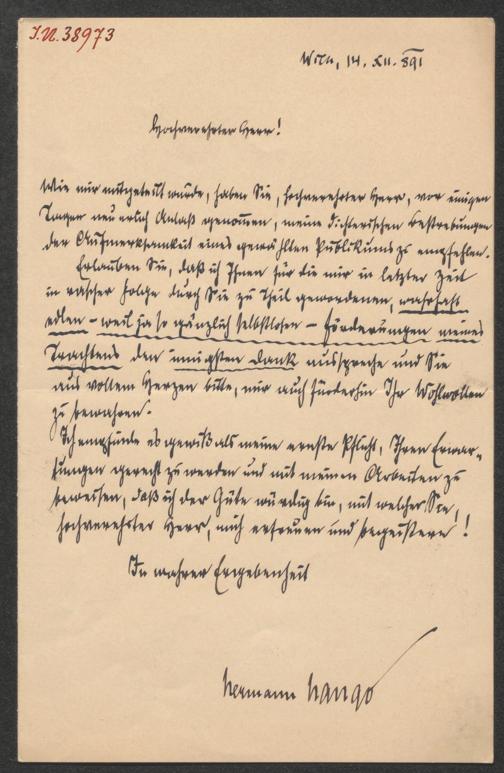 J.N. 38973
Wien, 14. XII. 891
Hochverehrter Herr!
Wie mir mitgeteilt wurde, haben Sie, hochverehrter Herr, vor einigen
Tagen neuerlich Anlaß genommen, meine dichterischen Bestrebungen
der Aufmerksamkeit eines gewählten Publikums zu empfehlen.
Erlauben Sie, daß ich Ihnen für die mir in letzter Zeit
in rascher Folge durch Sie zu Theil gewordenen, wahrhaft
edlen – weil ja so gänzlich selbstlosen – Förderungen meines
Trachtens den innigsten Dank ausspreche und Sie
aus vollem Herzen bitte, mir auch fürderhin Ihr Wohlwollen
zu bewahren.
Ich empfinde es gewiß als meine ernste Pflicht, Ihren Erwar-
tungen gerecht zu werden und mit meinen Arbeiten zu
beweisen, daß ich der Güte würdig bin, mit welcher Sie,
hochverehrter Herr, mich erfreuen und begeistern!
In wahrer Ergebenheit
Hermann Hango